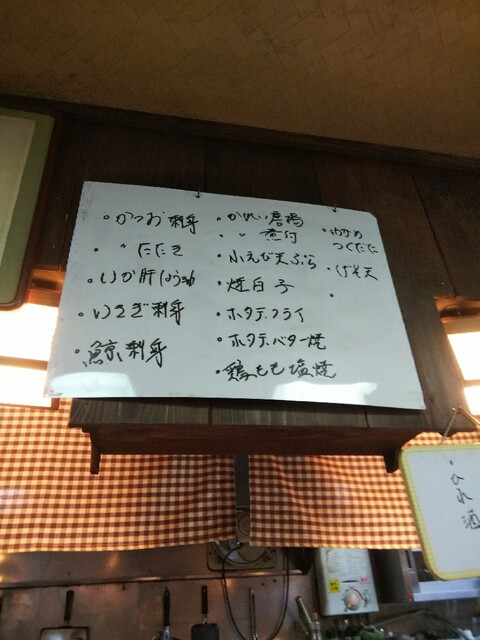 ・かつお刺身
・〃 たたき
・いか肝しょうゆ
・いさぎ刺身
・鯨刺身
・かれい唐揚
〃 煮付
・小えび天ぷら
・焼白子
・ホタテフライ
・ホタテバター焼
・鶏もも塩焼
・わかめ
つくだに
・げそ天
・
・ひれ酒